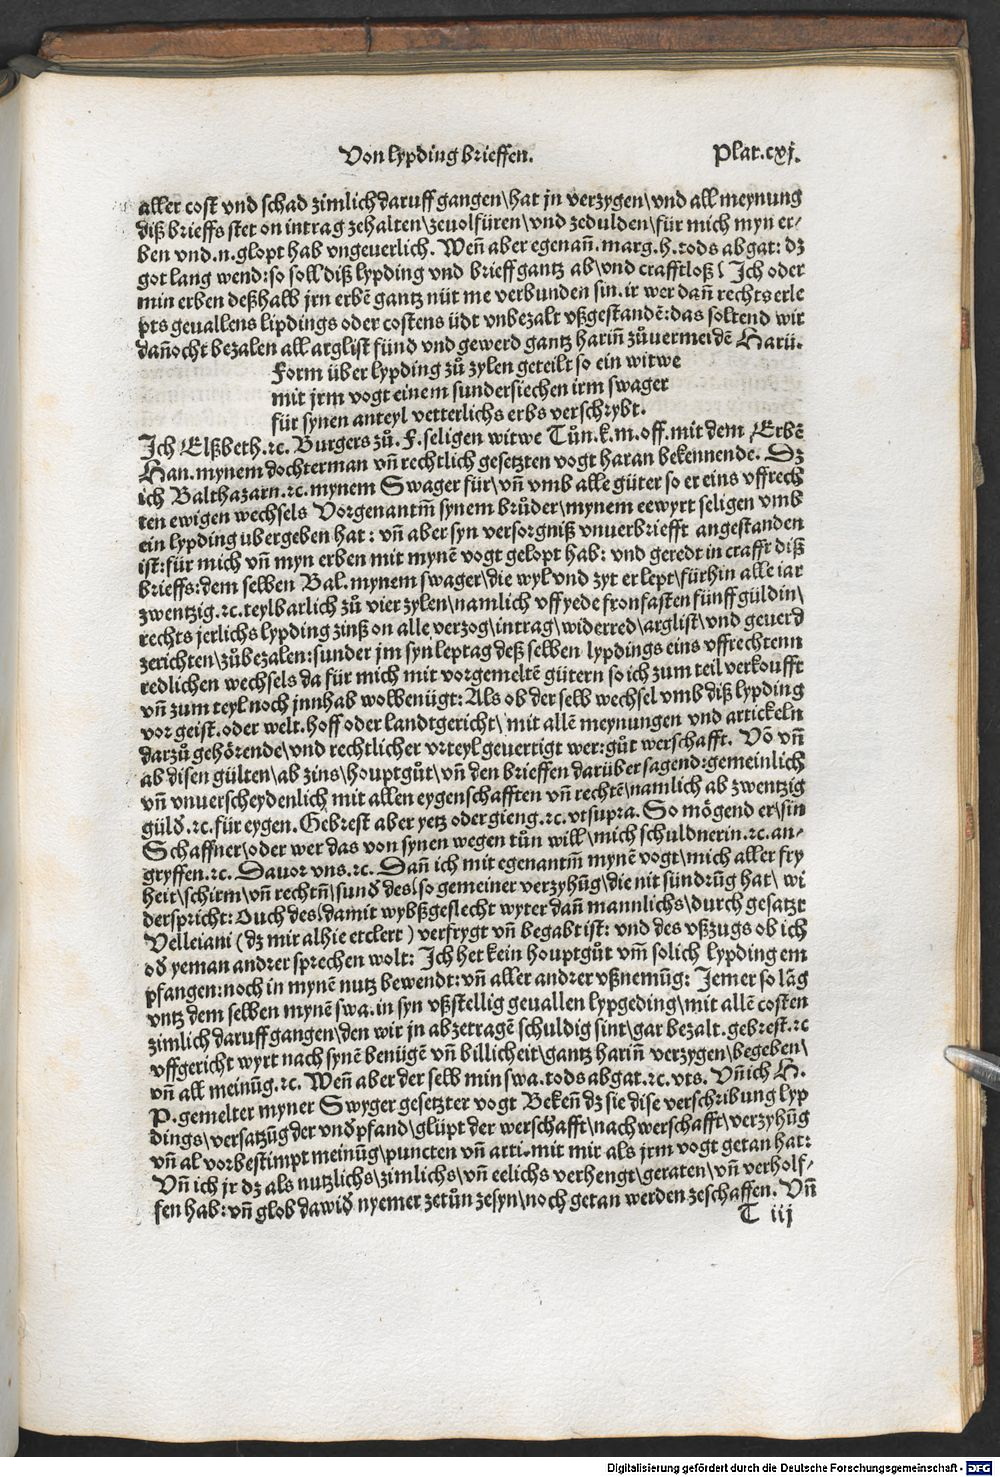 Von lypding brieffen. Plat.cxj.
aller cost vnd schad zimlich daruff gangen\hat jn verzygen\vnd all meynung
diß brieffs stet on intrag zehalten\zeuolfüren\vnd zedulden\für mich myn er-
ben vnd.n.glopt hab vngeuerlich. Weñ aber egenañ.marg.h.tods abgat: dz
got lang wend:so soll diß lypding vnd brieff gantz ab\vnd crafftloß \ Ich oder
min erben deßhalb jrn erbē gantz nüt me verbunden sin.ir wer dañ rechts erle
pts geuallens lipdings oder costens üdt vnbezalt vßgestandē:das soltend wir
dañocht bezalen all arglist fünd vnd gewerd gantz hariñ zůuermeidē Harü.
Form über lypding zů zylen geteilt so ein witwe
mit jrm vogt einem sundersiechen irm swager
für synen anteyl vetterlichs erbs verschrybt.
Ich Elßbeth.rc. Burgers zů.F.seligen witwe Tůn.k.m.off.mit dem Erbē
Han.mynem dochterman vñ rechtlich gesetzten vogt haran bekennende. Dz
ich Balthazarn.rc.mynem Swager für\vñ vmb alle güter so er eins vffrech
ten ewigen wechsels Vorgenantm̄ synem brůder\mynem eewyrt seligen vmb
ein lypding ubergeben hat: vñ aber syn versorgniß vnuerbriefft angestanden
ist:für mich vñ myn erben mit mynē vogt gelopt hab: vnd geredt in crafft diß
brieffs:dem selben Bal.mynem swager\die wyl vnd zyt er lept\fürhin alle iar
zwentzig.rc.teylbarlich zů vier zylen\namlich vff yede fronfasten fünff güldin\
rechts jerlichs lypding zinß on alle verzog\intrag\widerred\arglist\vnd geuerd
zerichten\zůbezalen:sunder jm syn leptag deß selben lypdings eins vffrechtenn
redlichen wechsels da für mich mit vorgemeltē gütern so ich zum teil verkoufft
vñ zum teyl noch jnnhab wolbenügt: Als ob der selb wechsel vmb diß lypding
vor geist.oder welt.hoff oder landtgericht\ mit allē meynungen vnd artickeln
darzů gehörende\vnd rechtlicher vrteyl geuertigt wer:gůt werschafft. Vō vñ
ab disen gülten\ab zins\houptgůt\vñ den brieffen darüber sagend:gemeinlich
vñ vnuerscheydenlich mit allen eygenschafften vñ rechtē\namlich ab zwentzig
güld̄.rc.für eygen. Gebrest aber yetz oder gieng.rc.vtsupra. So mögend er\sin
Schaffner\oder wer das von synen wegen tůn will\mich schuldnerin.rc.an-
gryffen.rc. Dauor vns.rc. Dañ ich mit egenantm̄ mynē vogt\mich aller fry
heit\schirm\vñ rechtñ\sund̄ des\so gemeiner verzyhūg\die nit sündrūg hat\ wi
derspricht: Ouch des\damit wybßgeslecht wyter dañ mannlichs\durch gesatzt
Velleiani (dz mir alhie etclert) verfrygt vñ begabt ist: vnd des vßzugs ob ich
od̄ yeman andrer sprechen wolt: Ich het kein houptgůt vm̄ solich lypding em
pfangen:noch in mynē nutz bewendt:vñ aller andrer vßnemūg: Iemer so lāg
vntz dem selben mynē swa.in syn vßstellig geuallen lypgeding\mit allē costen
zimlich daruff gangen\den wir jn abzetragē schuldig sint\gar bezalt.gebrest.rc
vffgericht wyrt nach synē benügē vñ billicheit\gantz hariñ verzygen\begeben\
vñ all meinūg.rc. Weñ aber der selb min swa.tods abgat.rc.vts. Vñ ich H.
P.gemelter myner Swyger gesetzter vogt Bekeñ dz sie dise verschribung lyp
dings\versatzūg der vnd̄pfand\glüpt der werschafft\nachwerschafft\verzyhūg
vñ al vorbestimpt meinūg\puncten vñ arti.mit mir als jrm vogt getan hat:
Vñ ich jr dz als nutzlichs\zimlichs\vñ eelichs verhengt\geraten\vñ verholf-
fen hab:vñ glob dawid̄ nyemer zetůn zesyn\noch getan werden zeschaffen. Vñ
T iij
Digitalisierung gefördert durch die Deutsche Forschungsgemeinschaft - DFG